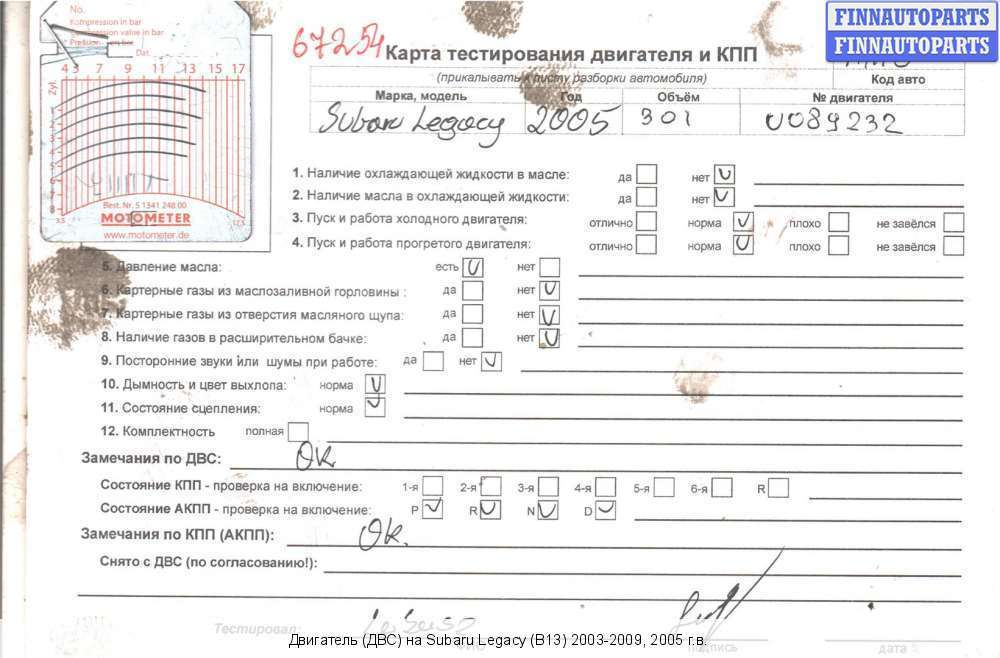 No.
Kompression in bar
Compression value in bar
Pression en bar
Dat.
4 3 5 7 9 11 13 15 17
Zyl.
Best. Nr. 5 1341 248 00
MOTOMETER
www.motometer.de
3,5 17,5
FINNAUTOPARTS
FINNAUTOPARTS
67254
Карта тестирования двигателя и КПП
(прикалывать к листу разборки автомобиля)
Код авто
Марка, модель Год Объём № двигателя
Subaru Legacy 2005 301 U089232
1. Наличие охлаждающей жидкости в масле: да нет V
2. Наличие масла в охлаждающей жидкости: да нет V
3. Пуск и работа холодного двигателя: отлично норма V плохо не завёлся
4. Пуск и работа прогретого двигателя: отлично норма V плохо не завёлся
5. Давление масла: есть V нет
6. Картерные газы из маслозаливной горловины : да нет V
7. Картерные газы из отверстия масляного щупа: да нет V
8. Наличие газов в расширительном бачке: да нет V
9. Посторонние звуки или шумы при работе: да нет V
10. Дымность и цвет выхлопа: норма V
11. Состояние сцепления: норма V
12. Комплектность полная
Замечания по ДВС: Ok
Состояние КПП - проверка на включение: 1-я 2-я 3-я 4-я 5-я 6-я R
Состояние АКПП - проверка на включение: P V R V N V D V
Замечания по КПП (АКПП): Ok.
Снято с ДВС (по согласованию!):
Тестировал:
ФИО подпись дата
Двигатель (ДВС) на Subaru Legacy (B13) 2003-2009, 2005 г.в.